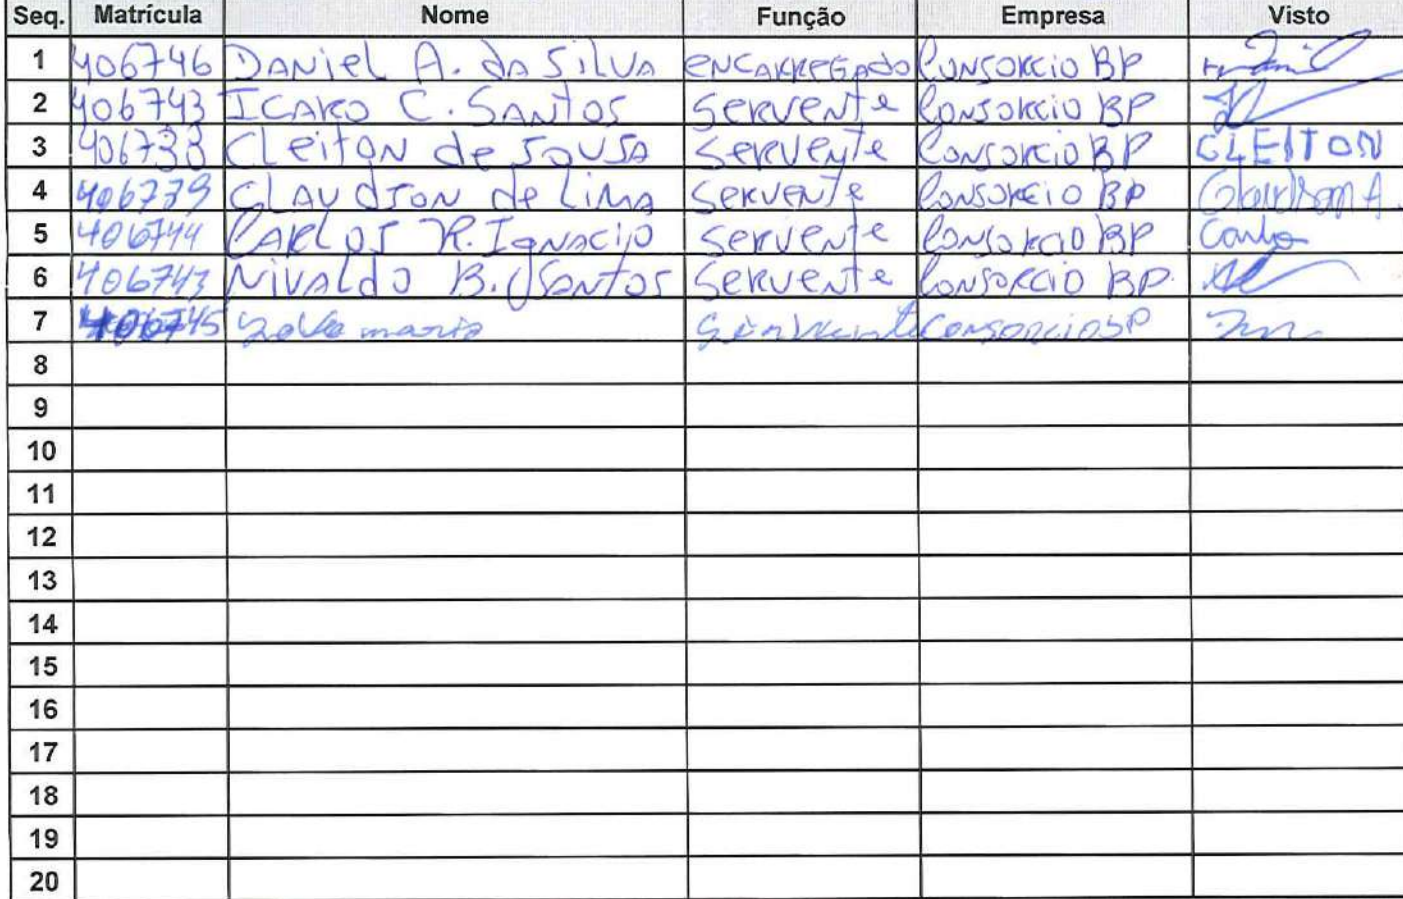 Seq. Matrícula Nome Função Empresa Visto
1 406746 DANIEL A. DA SILVA ENCARREGADO CONSORCIO BP
2 406743 ICARO C. SANTOS SERVENTE CONSORCIO BP
3 406738 CLEITON de SOUSA SERVENTE CONSORCIO BP CLEITON
4 406739 CLAUDSON de LIMA SERVENTE CONSORCIO BP
5 406744 CARLOS R. IGNACIO SERVENTE CONSORCIO BP Carlos
6 NIVALDO B. SANTOS SERVENTE CONSORCIO BP.
7 406745 maria CONSORCIO BP
8
9
10
11
12
13
14
15
16
17
18
19
20